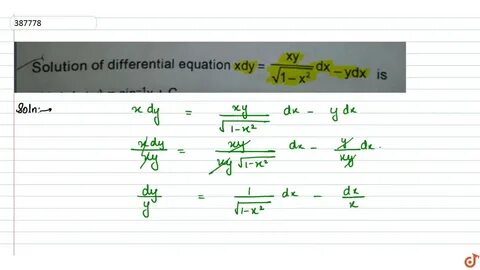 387778
Solution of differential equation xdy = xy/√(1-x²) dx - ydx is
Soln:→ x dy = xy/√(1-x²) dx - y dx
x dy/xy = xy/(xy √(1-x²)) dx - y/xy dx.
dy/y = 1/√(1-x²) dx - dx/x
doubtnut